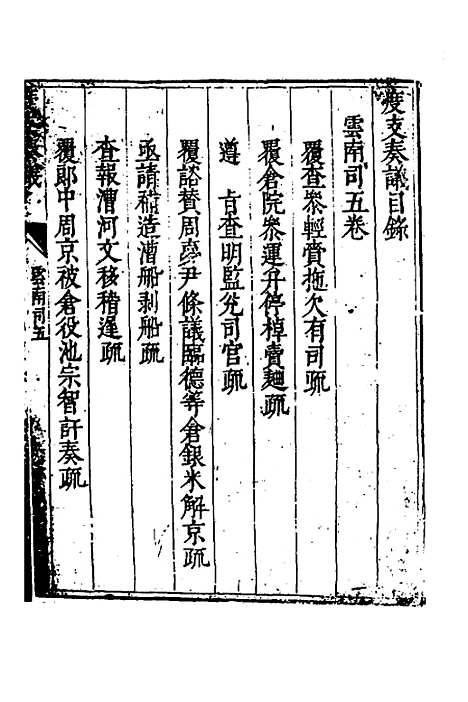 度支奏議目錄
雲南司五卷
覆查叅輕賫拖欠有司疏
覆倉院叅運弁停棹賣麵疏
遵 旨查明監兊司官疏
覆諮賛周夢尹條議臨德等倉銀米解京疏
亟請補造漕船剥船疏
查報漕河文移稽遲疏
覆郎中周京被倉役池宗智訐奏疏
雲南司五